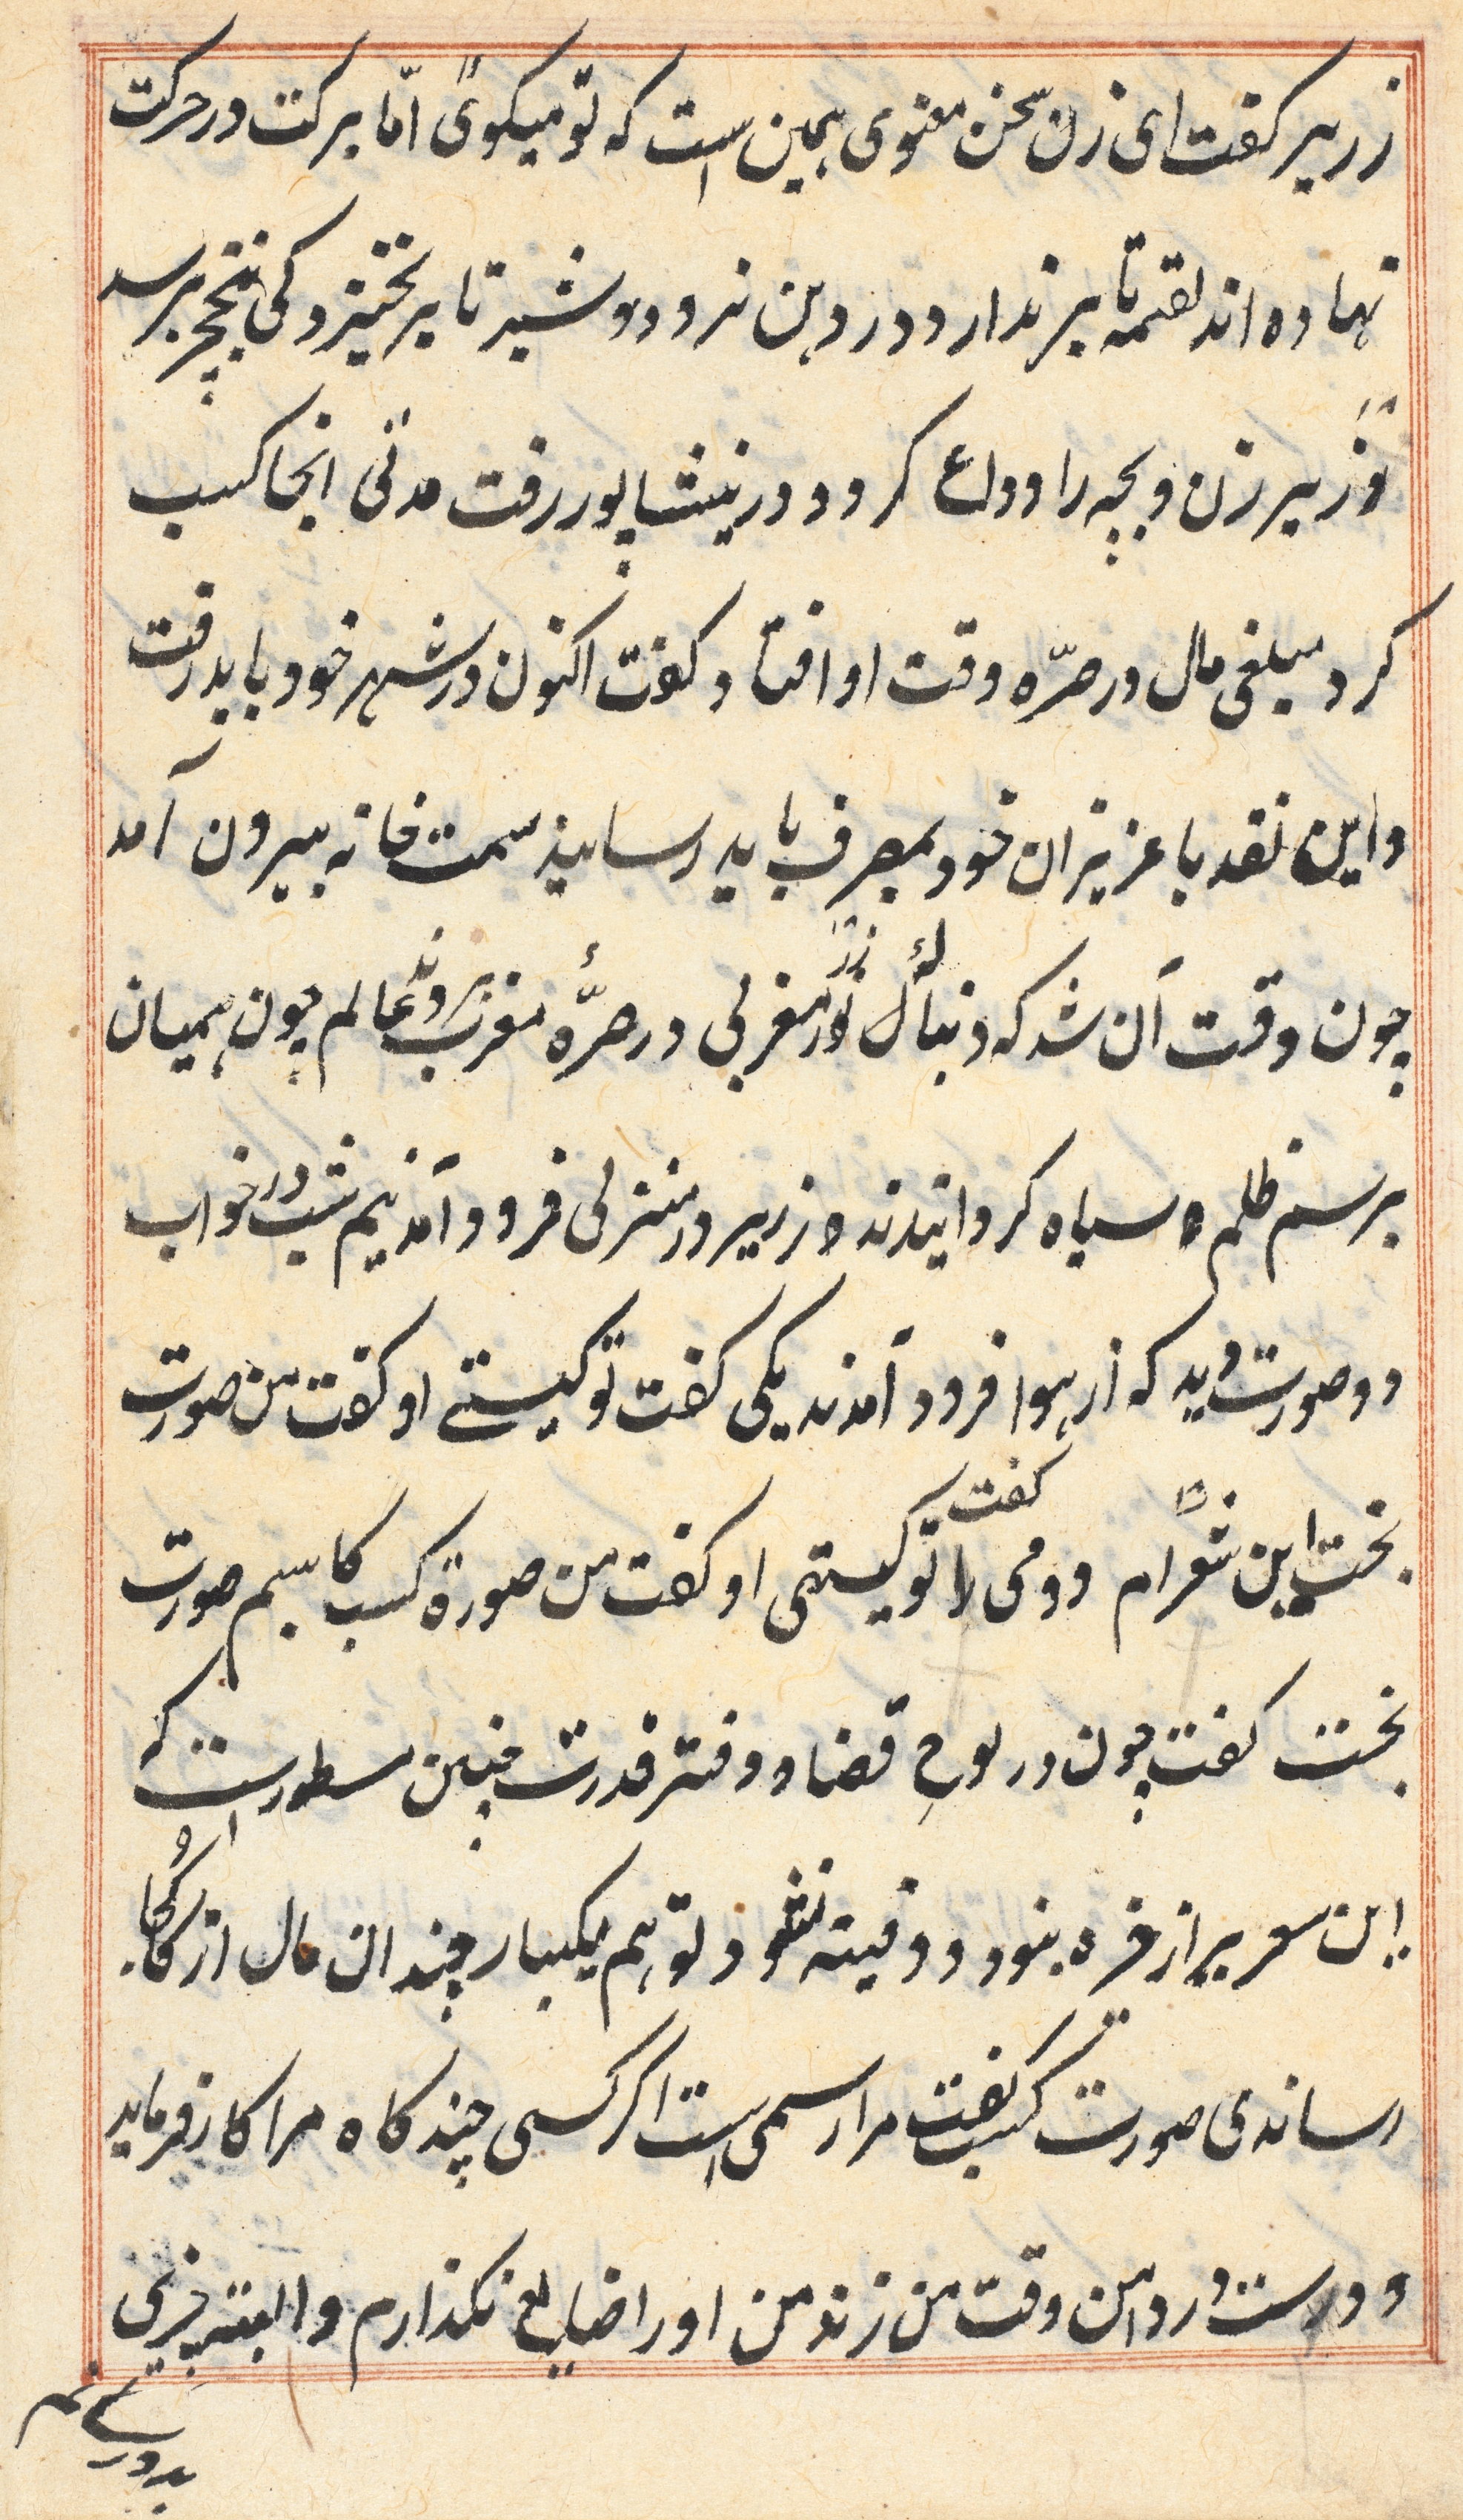 زریر کفت ای زن سخن معنوی همین است که تو میکوئ امّا برکت در حرکت
نهاده اند لقمه تا بر ندارد در دهن نرود و شیر تا بر نخیزد کی بنخچیر رسد
زریر زن و بچه را وداع کرد و در نیشاپور رفت مدتی انجا کسب
کرد مبلغی مال در صرّه وقت او افتاد کفت اکنون در شهر خود باید رفت
و این نقد با عزیزان خود بمصرف باید رسانید سمت خانه بیرون آمد
چون وقت آن شد که دنبال زر مغربی در صرّه مغرب و عالم چون همیان
بر سنم ظلم سیاه کردانیدند زریر در منزلی فرود آمد نیم شب در خواب
دو صورت دید که از هوا فرود آمدند یکی کفت تو کیستے او کفت من صورت
بخت این ام دومی را کفت تو کیستی او کفت من صورة کسب کاسبم صورت
بخت کفت چون در لوح قضا و دفتر قدرت چنین مسطور است که
این سعر پر از خره بنود و دفینه نشود تو هم یکبار چندان مال از کجا
رساندی صورت کسب کفت مرا رسمی است اکر کسی چند کاه مرا کار فرماید
و درست دارد این وقت من زند من او را ضایع نکذارم و البته چیزی
بدو رسانم